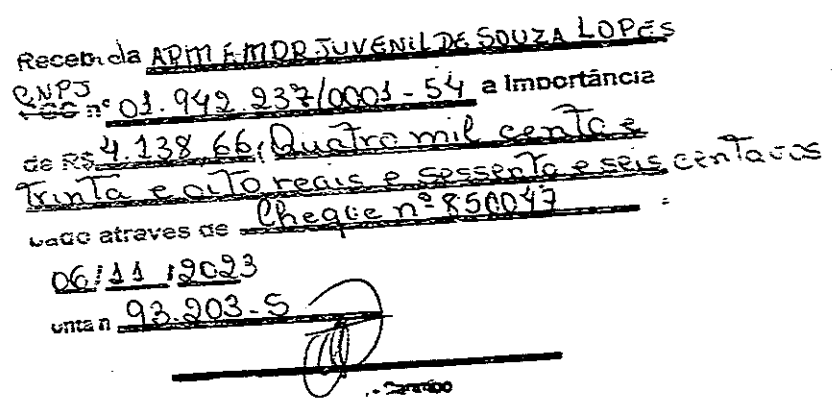 Recebi da APM EMDR JUVENIL DE SOUZA LOPES
CNPJ
CGC nº 01.942.237/0001-54 a Importância
de R$ 4.138,66, (Quatro mil cento e
Trinta e oito reais e sessenta e seis centavos
pago atraves de Cheque nº 850047
06/11/2023
onta n 93.203-5
Carimbo